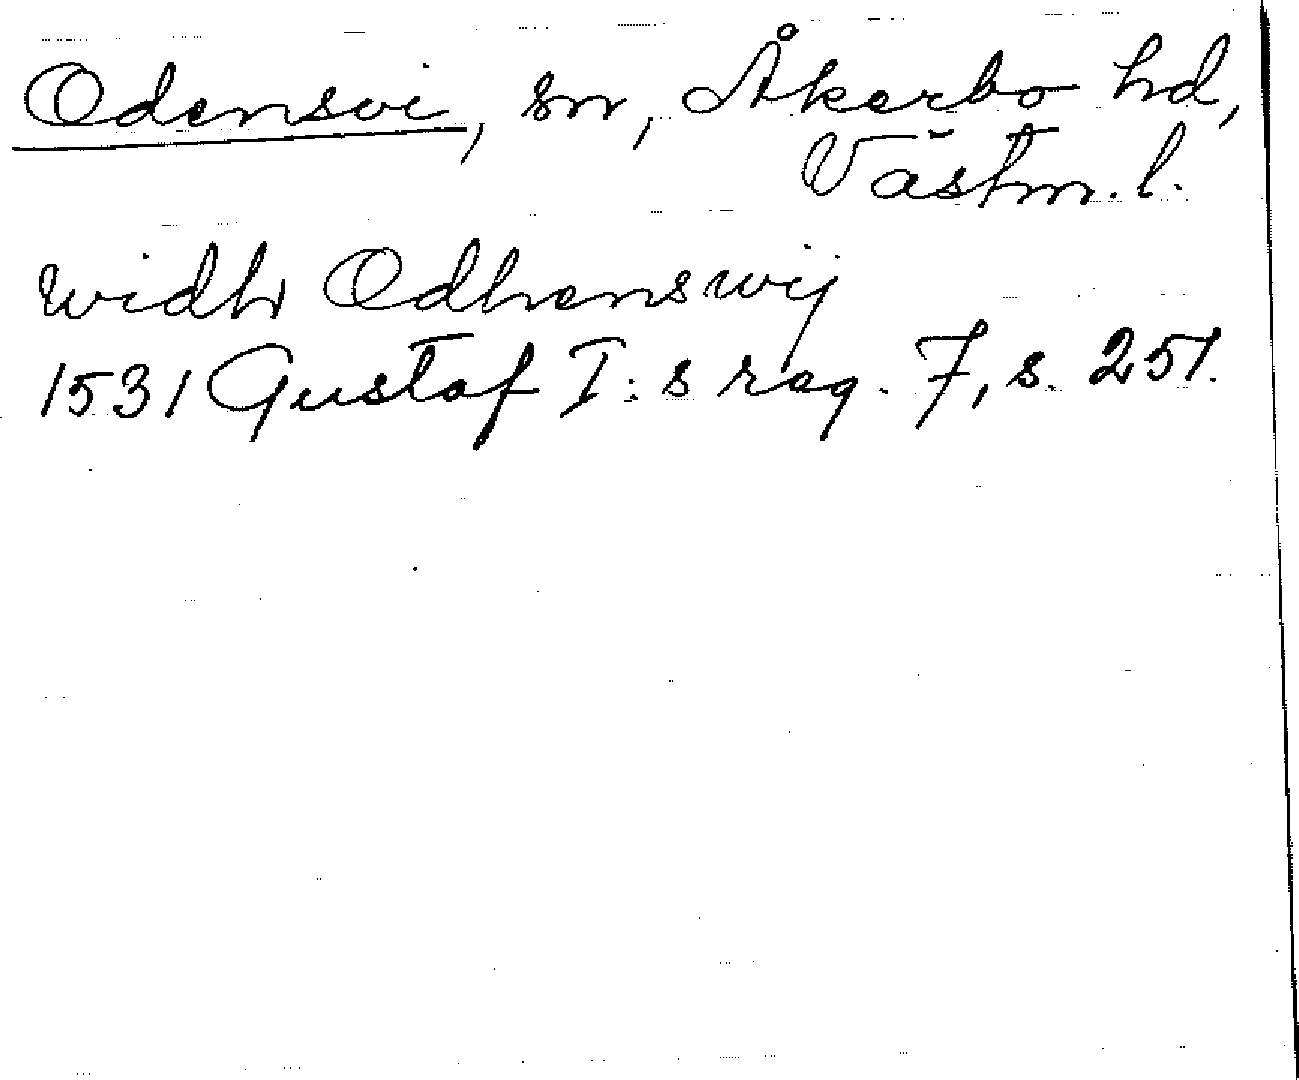 Odensvi, sn, Åkerbo hd,
Västm. l.
widh Odhenswij
1531 Gustaf I:s reg. 7, s. 251.